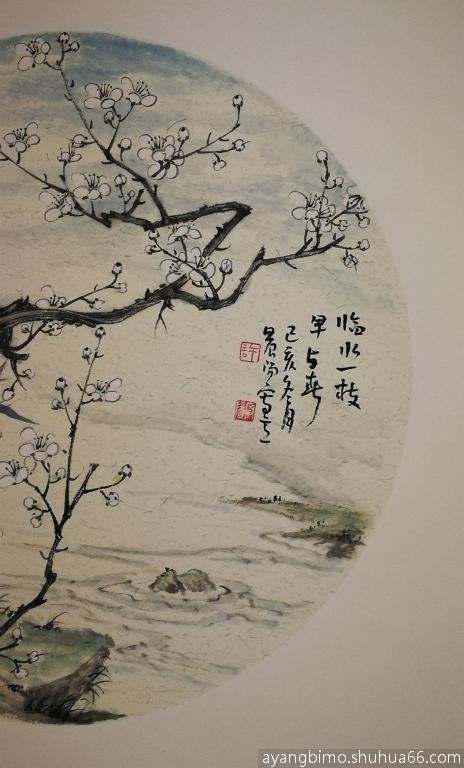 临水一枝
早占春
己亥冬月
晨阳写意
許
ayangbimo.shuhua66.com